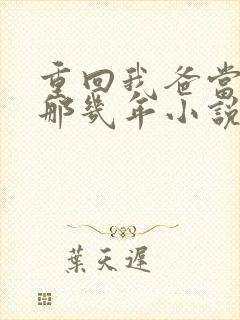 重回我爸當
那幾年小說
葉天遲